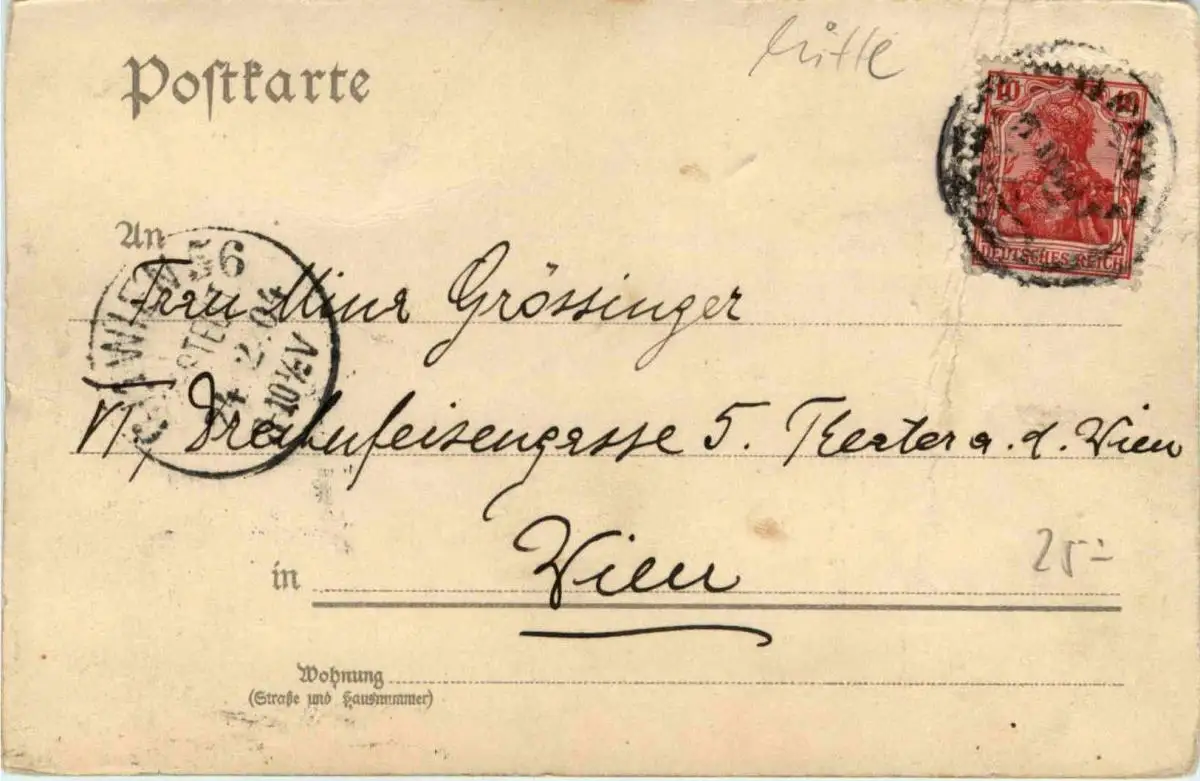 Postkarte
10 10
DEUTSCHES REICH
An
WIEN 56
4 2.04
10½V
Frau Mina Grössinger
VI, Dreihufeisengasse 5. Theater a. d. Wien
in Wien
25-
Wohnung
(Straße und Hausnummer)